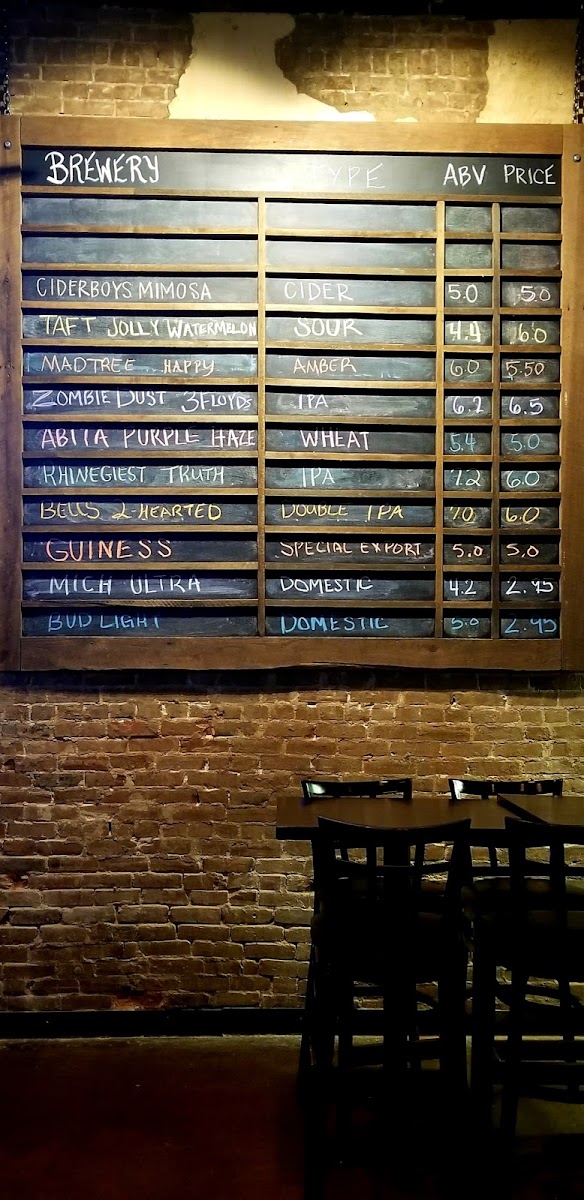 BREWERY TYPE ABV PRICE
CIDERBOYS MIMOSA CIDER 5.0 5.0
TAFT JOLLY WATERMELON SOUR 4.4 6.0
MADTREE HAPPY AMBER 6.0 5.50
ZOMBIE DUST 3FLOYDS IPA 6.2 6.5
ABITA PURPLE HAZE WHEAT 5.4 5.0
RHINEGIEST TRUTH IPA 7.2 6.0
BELLS 2-HEARTED DOUBLE IPA 7.0 6.0
GUINESS SPECIAL EXPORT 5.0 5.0
MICH ULTRA DOMESTIC 4.2 2.95
BUD LIGHT DOMESTIC 5.0 2.95